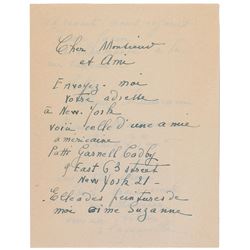 Cher Monsieur
et Ami
Envoyez moi
votre adresse
à New-York
voici celle d'une amie
américaine
Patti Garnell Cadby
9 East 63 street
New York 21-
Elle a des peintures de
moi aime Suzanne